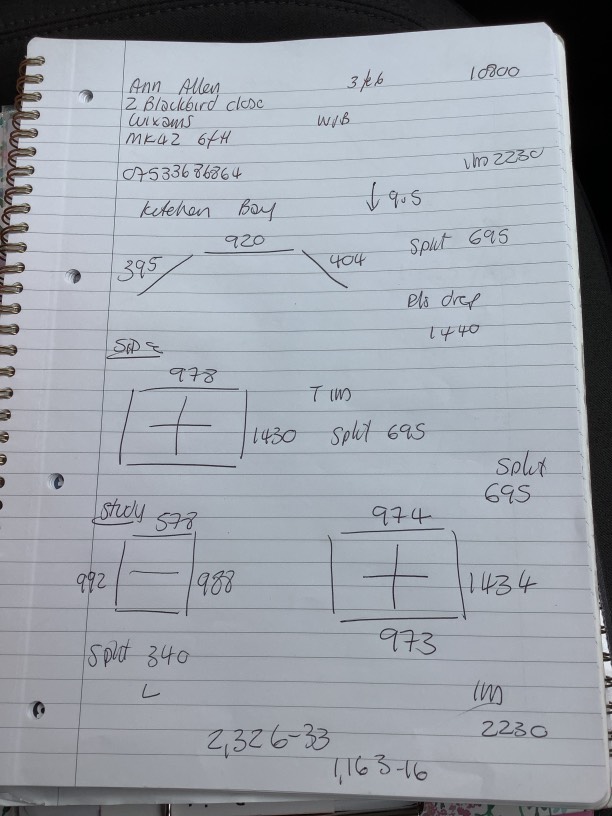 Ann Allen 3 10800
2 Blackbird close
Wixams W/B
MK42 6fH
07533686864 2230
Kitchen Bay ↓ 905
920 Split 695
395 404
drop
1440
Side
978
1430 IM
Split 695
Split
695
Study
578 974
992 988 1434
973
Split 340
L IM
2230
2,326-33
1,163-16